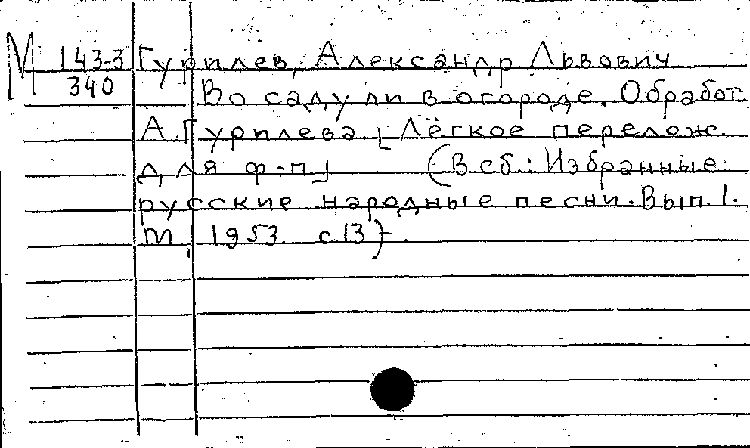 М 143-3 Гурилев, Александр Львович
340 Во саду ли в огороде. Обработ.
А. Гурилева [Лёгкое перелож.
для ф-п] (В сб.: Избранные
русские народные песни. Вып. 1.
М, 1953 с.13).